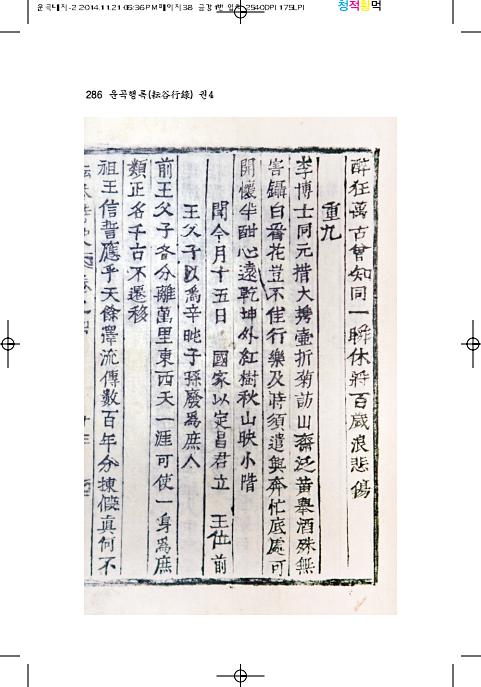 운곡내지-2 2014.11.21 05:36 PM 페이지38
2540DPI 175LPI
청적황먹
286 운곡행록(耘谷行錄) 권4
醉狂萬古曾知同一瞬休將百歲浪悲傷
重九
李博士同元措大携壺折菊訪山齋泛黃擧酒殊無
害鑷白簪花豈不佳行樂及時須遣興奔忙底處可
開懷半酣心遠乾坤外紅樹秋山映小階
聞今月十五日 國家以定昌君立 王位前
王父子以爲辛旽子孫廢爲庶人
前王父子各分離萬里東西天一涯可使一身爲庶
類正名千古不遷移
祖王信誓應乎天餘澤流傳數百年分揀假眞何不